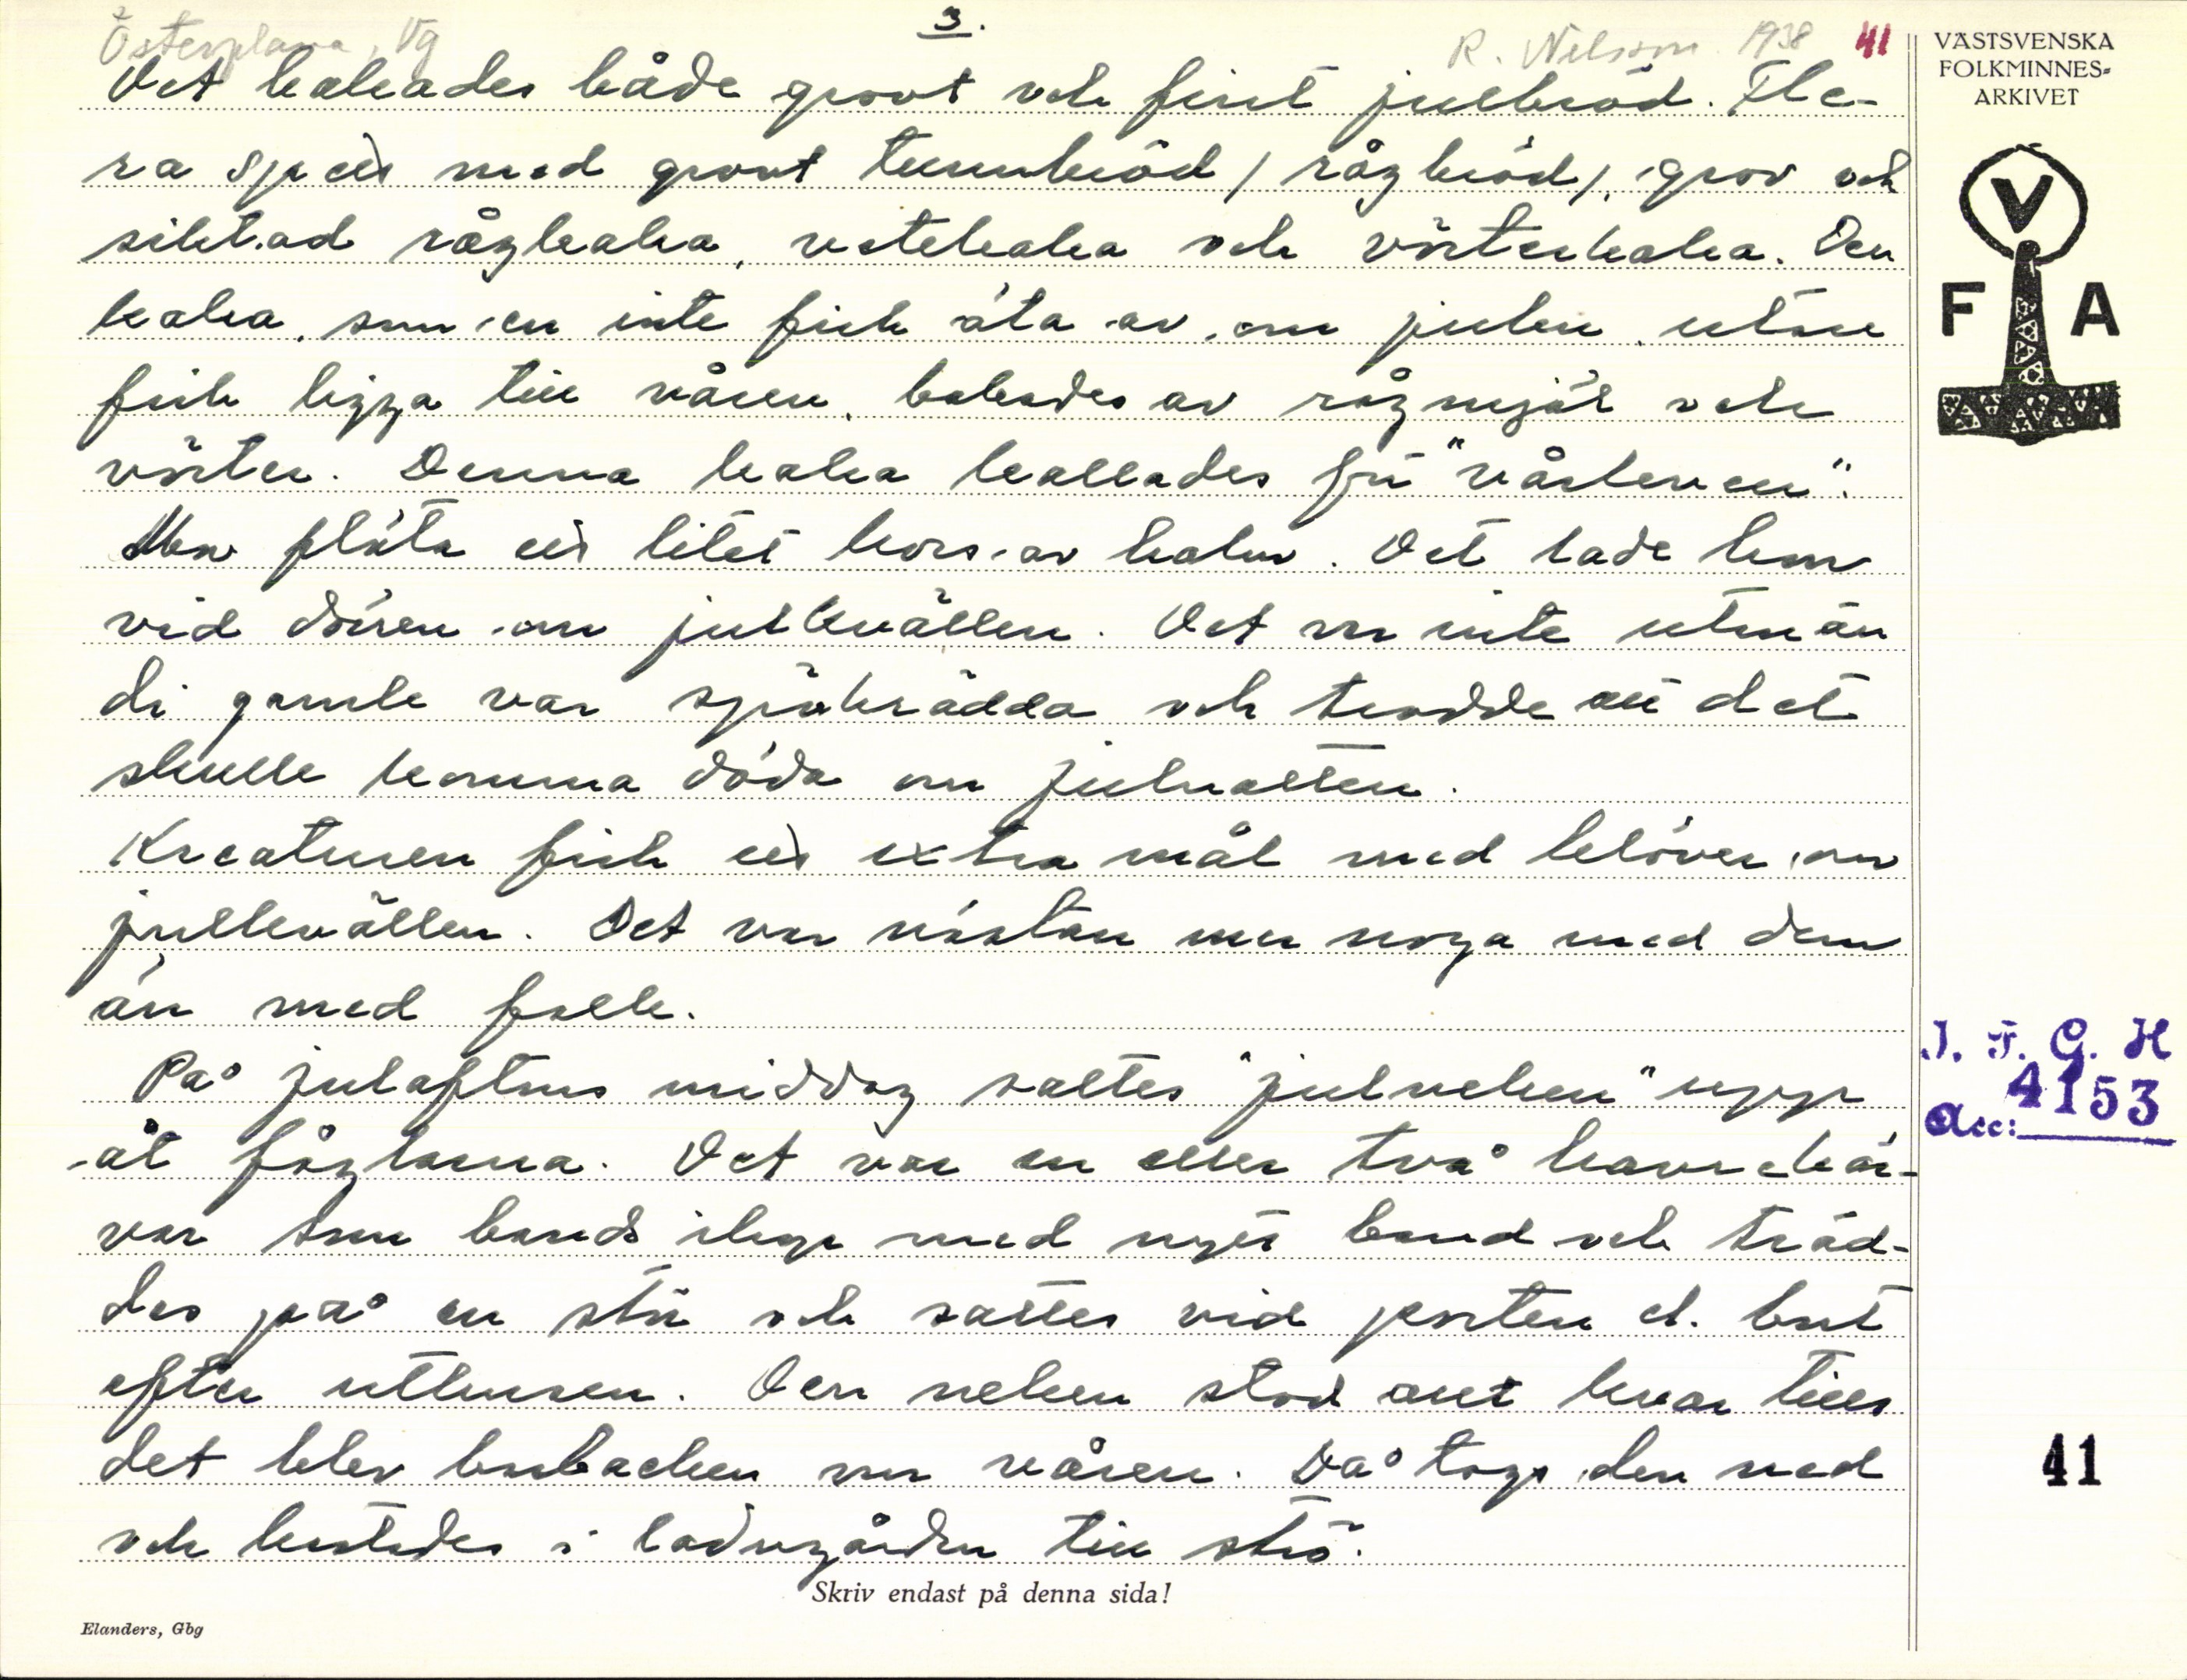 3.
Österplana, Vg
R. Nilsson 1938 41
Det bakades både grovt och fint julbröd. Fle-
ra spett med grovt tunnbröd / rågbröd /, grov och
siktad rågkaka, vetekaka och vörtekaka. Den
kaka, som en inte fick äta av om julen, utan
fick ligga till våren, bakades av rågmjöl och
vörter. Denna kaka kallades för "vårleven".
Man fläta ett litet kors av halm. Det lade hon
vid dören om julkvällen. Det var inte utan än
di gamle var spökrädda och trodde att det
skulle komma döda om julnatten.
Kreaturen fick ett extra mål med klöver om
julkvällen. Det var nästan mer noga med dem
än med folk.
På julaftons middag sattes "julneken" upp
åt fåglarna. Det var en eller två havrekär-
var som bands ihop med nytt band och träd-
des på en stör och sattes vid porten el. bort
efter uthusen. Den neken stod allt kvar tills
det blev barbacken om våren. Då togs den ned
och kastades i ladugården till strö.
Skriv endast på denna sida!
Elanders, Gbg
VÄSTSVENSKA
FOLKMINNES-
ARKIVET
V
F A
I. F. G. H
Acc: 4153
41